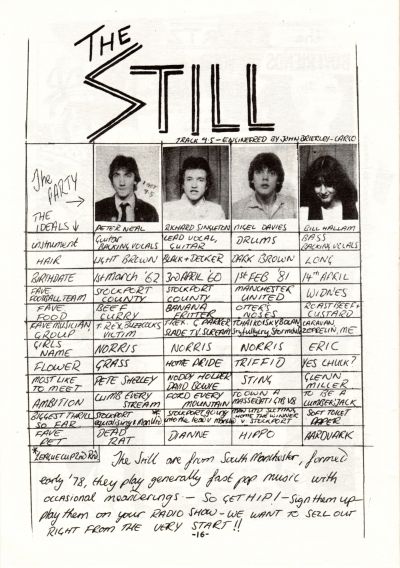 THE
STILL
TRACK 4.5 - ENGINEERED BY JOHN BRIERLEY - CARGO
The PARTY →
THE IDEALS ↓
PETER NEAL RICHARD SINGLETON NIGEL DAVIES GILL HALLAM
INSTRUMENT GUITAR BACKING VOCALS LEAD VOCAL, GUITAR DRUMS BASS BACKING VOCALS
HAIR LIGHT BROWN BLACK + DECKER DARK BROWN LONG
BIRTHDATE 1st MARCH '62 3RD APRIL '60 1st FEB '81 14TH APRIL
FAVE FOOTBALL TEAM STOCKPORT COUNTY STOCKPORT COUNTY MANCHESTER UNITED WIDNES
FAVE FOOD BEEF CURRY BANANA FRITTER OTTER'S NOSES ROAST BEEF + CUSTARD
FAVE MUSICIAN GROUP T. REX, BUZZCOCKS VICTIM T. REX. G. PARKER SLADE TV SCREAM TCHAIKOVSKY BOLAN CARAVAN, ZEPPELIN, ME
GIRLS NAME NORRIS NORRIS NORRIS ERIC
FLOWER GRASS HOME PRIDE TRIFFID YES CHUCK?
MOST LIKE TO MEET PETE SHELLEY NODDY HOLDER DAVID BOWIE STING GLENN MILLER
AMBITION CLIMB EVERY STREAM FORD EVERY MOUNTAIN TO OWN A MASSERATI TO BE A LUMBERJACK
BIGGEST THRILL SO FAR STOCKPORT STOCKPORT GOING MAN UTD SITTING HOME THE WINNER v STOCKPORT SOFT TOILET PAPER
FAVE PET DEAD RAT DIANNE HIPPO AARDVARK
* LEAGUE CUP 2nd RD
The Still are from South Manchester, formed
early '78, they play generally fast pop music with
occasional meanderings - SO GET HIP! - Sign them up
play them on your RADIO SHOW - WE WANT TO SELL OUT
RIGHT FROM THE VERY START!!
-16-